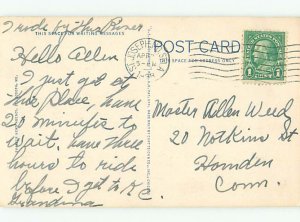 I rode by this River
THIS SPACE FOR WRITING MESSAGES
POST CARD
THIS SPACE FOR ADDRESS ONLY
ST. JOSEPH
APR
Hello Allen
I just got at
this Place, have
20 minutes to
wait, have three
hours to ride
before I get to K.C.
Grandma
Master Allen Weed
20 Hotkins St
Hamden
Conn.
1 CENT 1